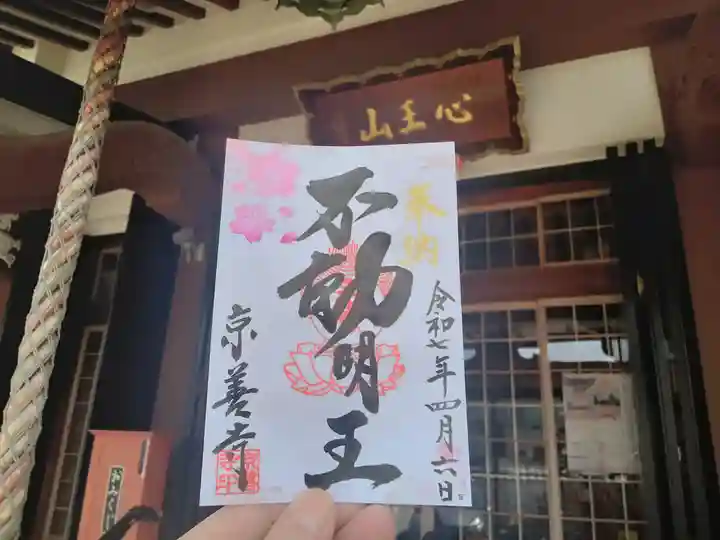 心王山
奉納
不動明王
令和七年四月六日
京善寺
おみくじ